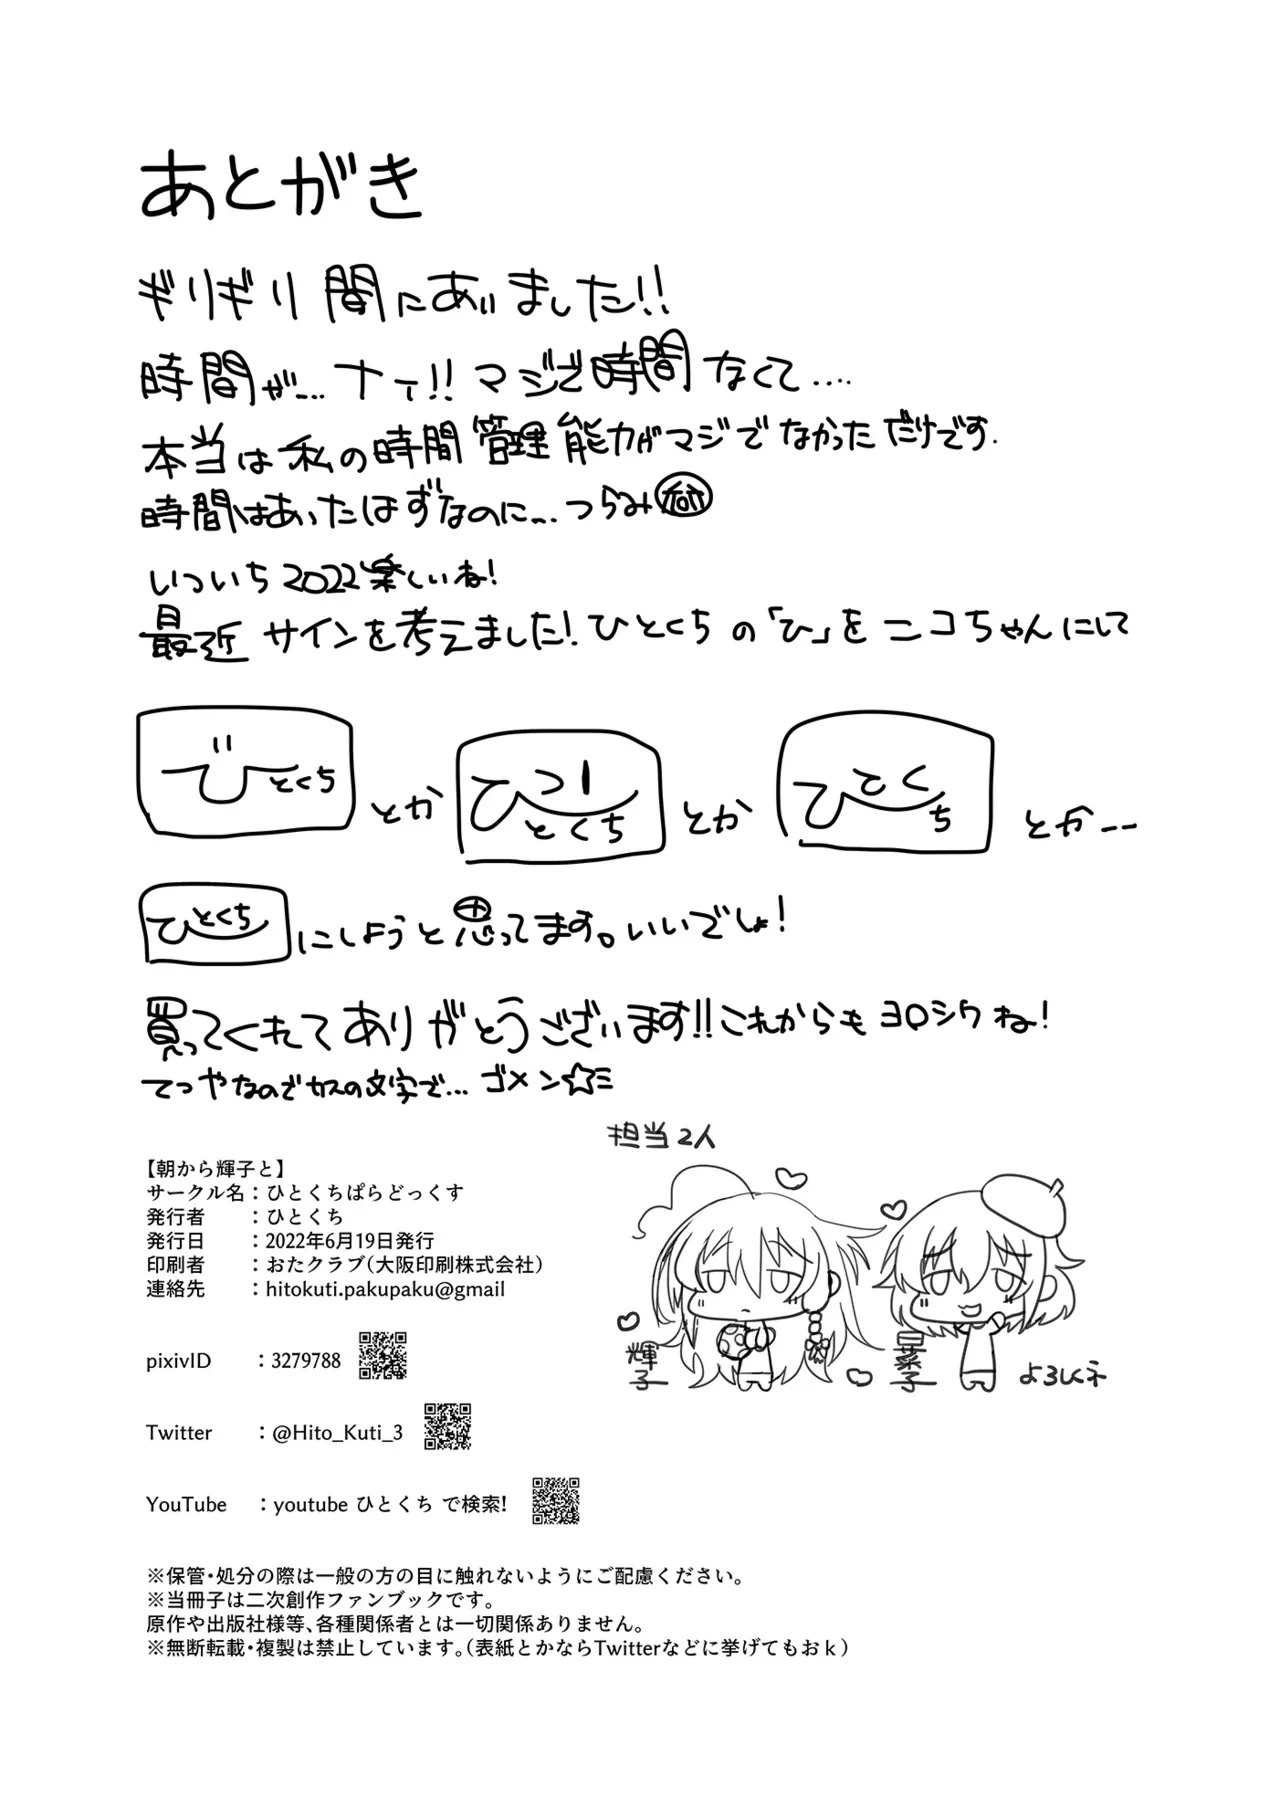 あとがき
ギリギリ間にあいました!!
時間が…ナイ!!マジで時間なくて‥‥
本当は私の時間管理能力がマジでなかっただけです.
時間はあったはずなのに…つらみ
いついち2022楽しいね!
最近サインを考えました!ひとくちの「ひ」をニコちゃんにして
ひとくち とか ひとくち とか ひとくち とか--
ひとくち にしようと思ってます。いいでしょ!
買ってくれてありがとうございます!!これからもヨロシクね!
てつやなのでカスの文字で…ゴメン☆ミ
担当2人
輝子
子
よろしくネ
【朝から輝子と】
サークル名：ひとくちぱらどっくす
発行者：ひとくち
発行日：2022年6月19日発行
印刷者：おたクラブ(大阪印刷株式会社)
連絡先：hitokuti.pakupaku@gmail
pixivID：3279788
Twitter：@Hito_Kuti_3
YouTube：youtube ひとくち で検索!
※保管・処分の際は一般の方の目に触れないようにご配慮ください。
※当冊子は二次創作ファンブックです。
原作や出版社様等、各種関係者とは一切関係ありません。
※無断転載・複製は禁止しています。(表紙とかならTwitterなどに挙げてもおｋ)